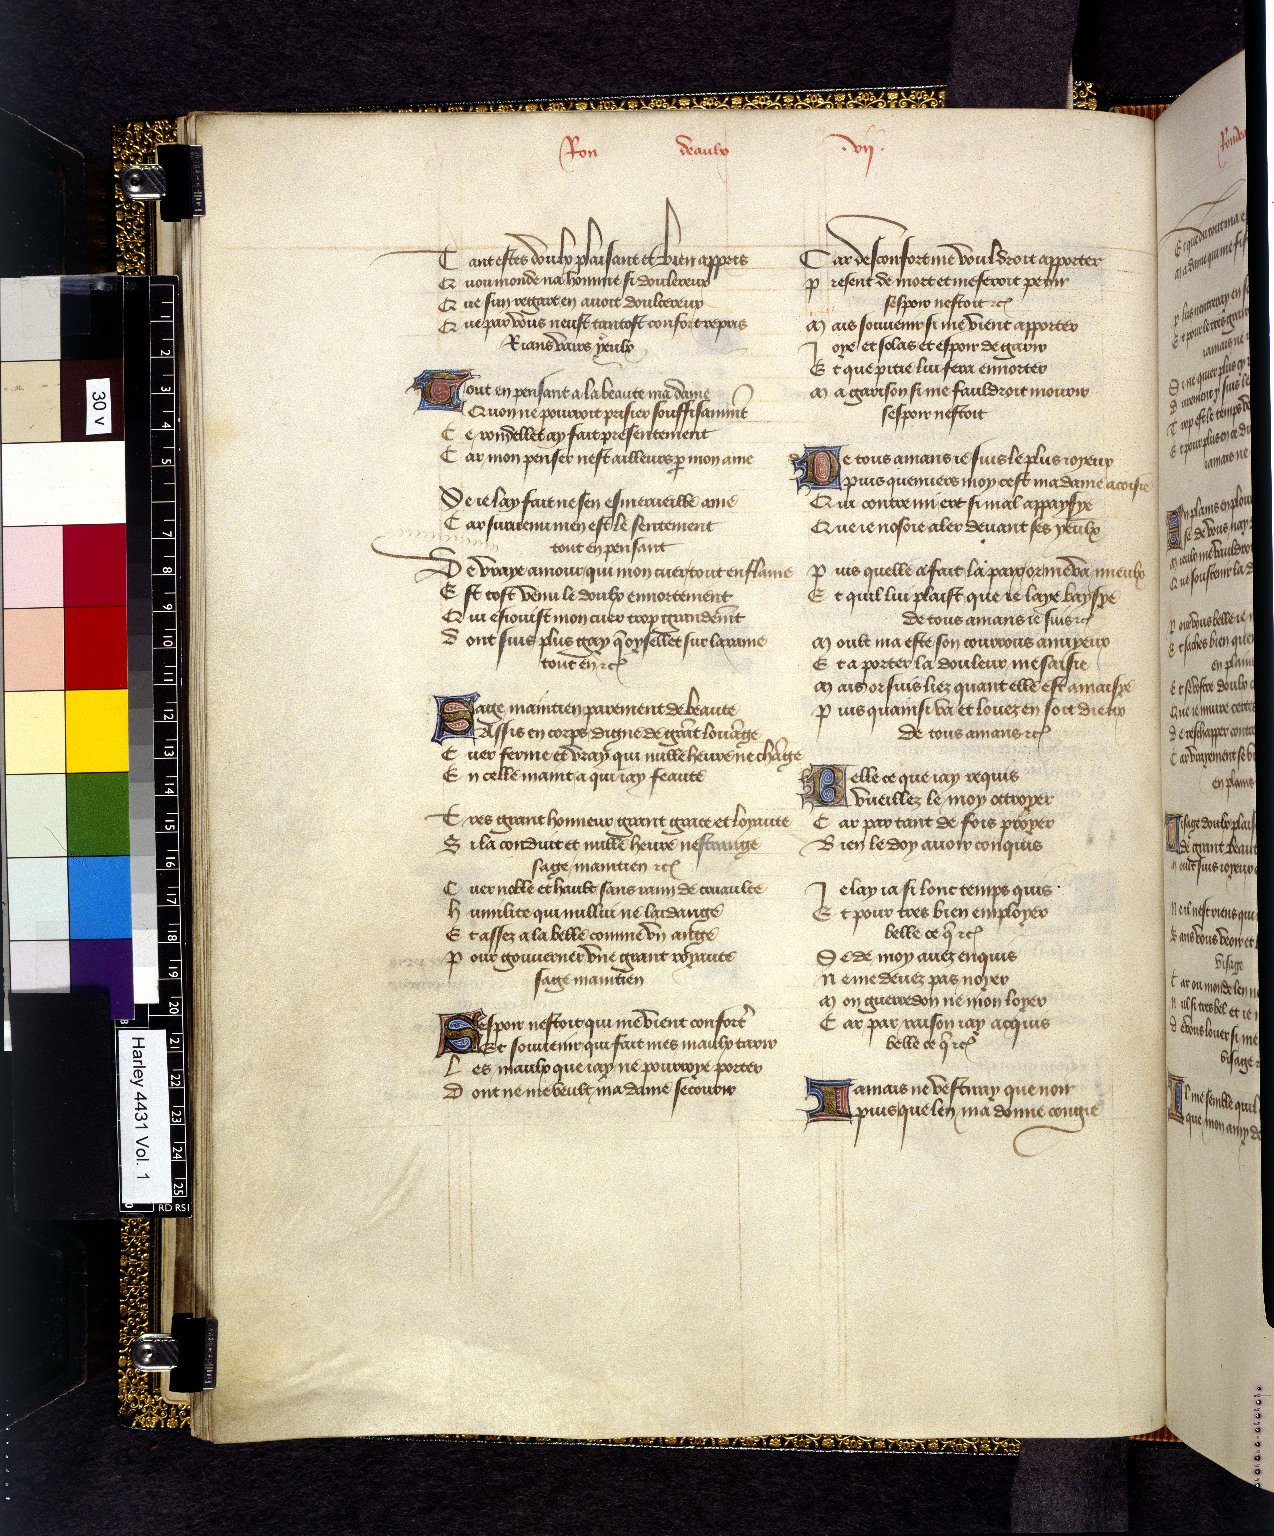 Ron deaulx .vij.
Tant estes doulx plaisant et bien appris
Quou monde na homme si doulereux
Que sun regart en avoit doulcereux
Que par vous neust tantost confort repris
Rians vairs yeulx
Tout en pensant a la beaute ma dame
Quon ne pourroit prisier souffisamment
Ce rondellet ay fait presentement
Car mon penser nest ailleurs p mon ame
Se ie lay fait ne sen esmerueille ame
Car survenu men est le sentement
tout en pensant
De vraye amour qui mon cuer tout enflame
Est tost venu le doulx ennortement
Qui esiouist mon cuer trop grandemt
Dont suis plus gay q oysellet sur la rame
tout en rc
Sage maintien parement de beaute
Assis en corps digne de grat louage
Cuer ferme et vray qui nulle heure ne chage
En celle maint a qui iay feaute
Tres grant honneur grant grace et loyaute
Si la conduit et nulle heure nestrange
sage maintien rc
Cuer noble et hault sans raim de cruaulte
humilite qui nullui ne laidange
Et assez a la belle comme vn ange
Pour gouverner vne grant royaute
sage maintien
Sespoir nestoit qui me vient confort
Et souvenir qui fait mes maulx tarir
Les maulx que iay ne pourroye porter
Dont ne me veult ma dame secourir
Car desconfort me vouldroit apporter
present de mort et me feroit perir
sespoir nestoit rc
Mais souvenir si me vient apporter
Joye et solas et espoir de garir
Et que pitie lui fera ennorter
Ma garison si me fauldroit mourir
sespoir nestoit
De tous amans ie suis le plus ioyeux
puis quenvers moy cest ma dame acoisie
Qui contre mi ert si mal appaysye
Que ie nosoie aler devant ses yeulx
Puis quelle a fait la paix or me va mieulx
Et quil lui plaist que ie laye baysye
de tous amans ie suis rc
Moult ma este son courrous anuyeux
Et a porter la douleur mesaisie
Mais or suis liez quant elle est amaisye
Puis quainsi va et louez en soit dieux
de tous amans rc
Belle ce que iay requis
Vueillez le moy ottroyer
Car par tant de fois proyer
Bien le doy avoir conquis
Je lay ia si lonc temps quis
Et pour tres bien employer
belle ce q rc
Se de moy avez enquis
Ne me devez pas noyer
Mon guerredon ne mon loyer
Car par raison iay acquis
belle ce q rc
Jamais ne vestiray que noir
puis que len ma donne congie
30 v
Harley 4431 Vol. 1
1
2
3
4
5
7
8
9
10
11
12
13
14
15
16
17
18
19
20
21
22
23
24
25
RD RSI